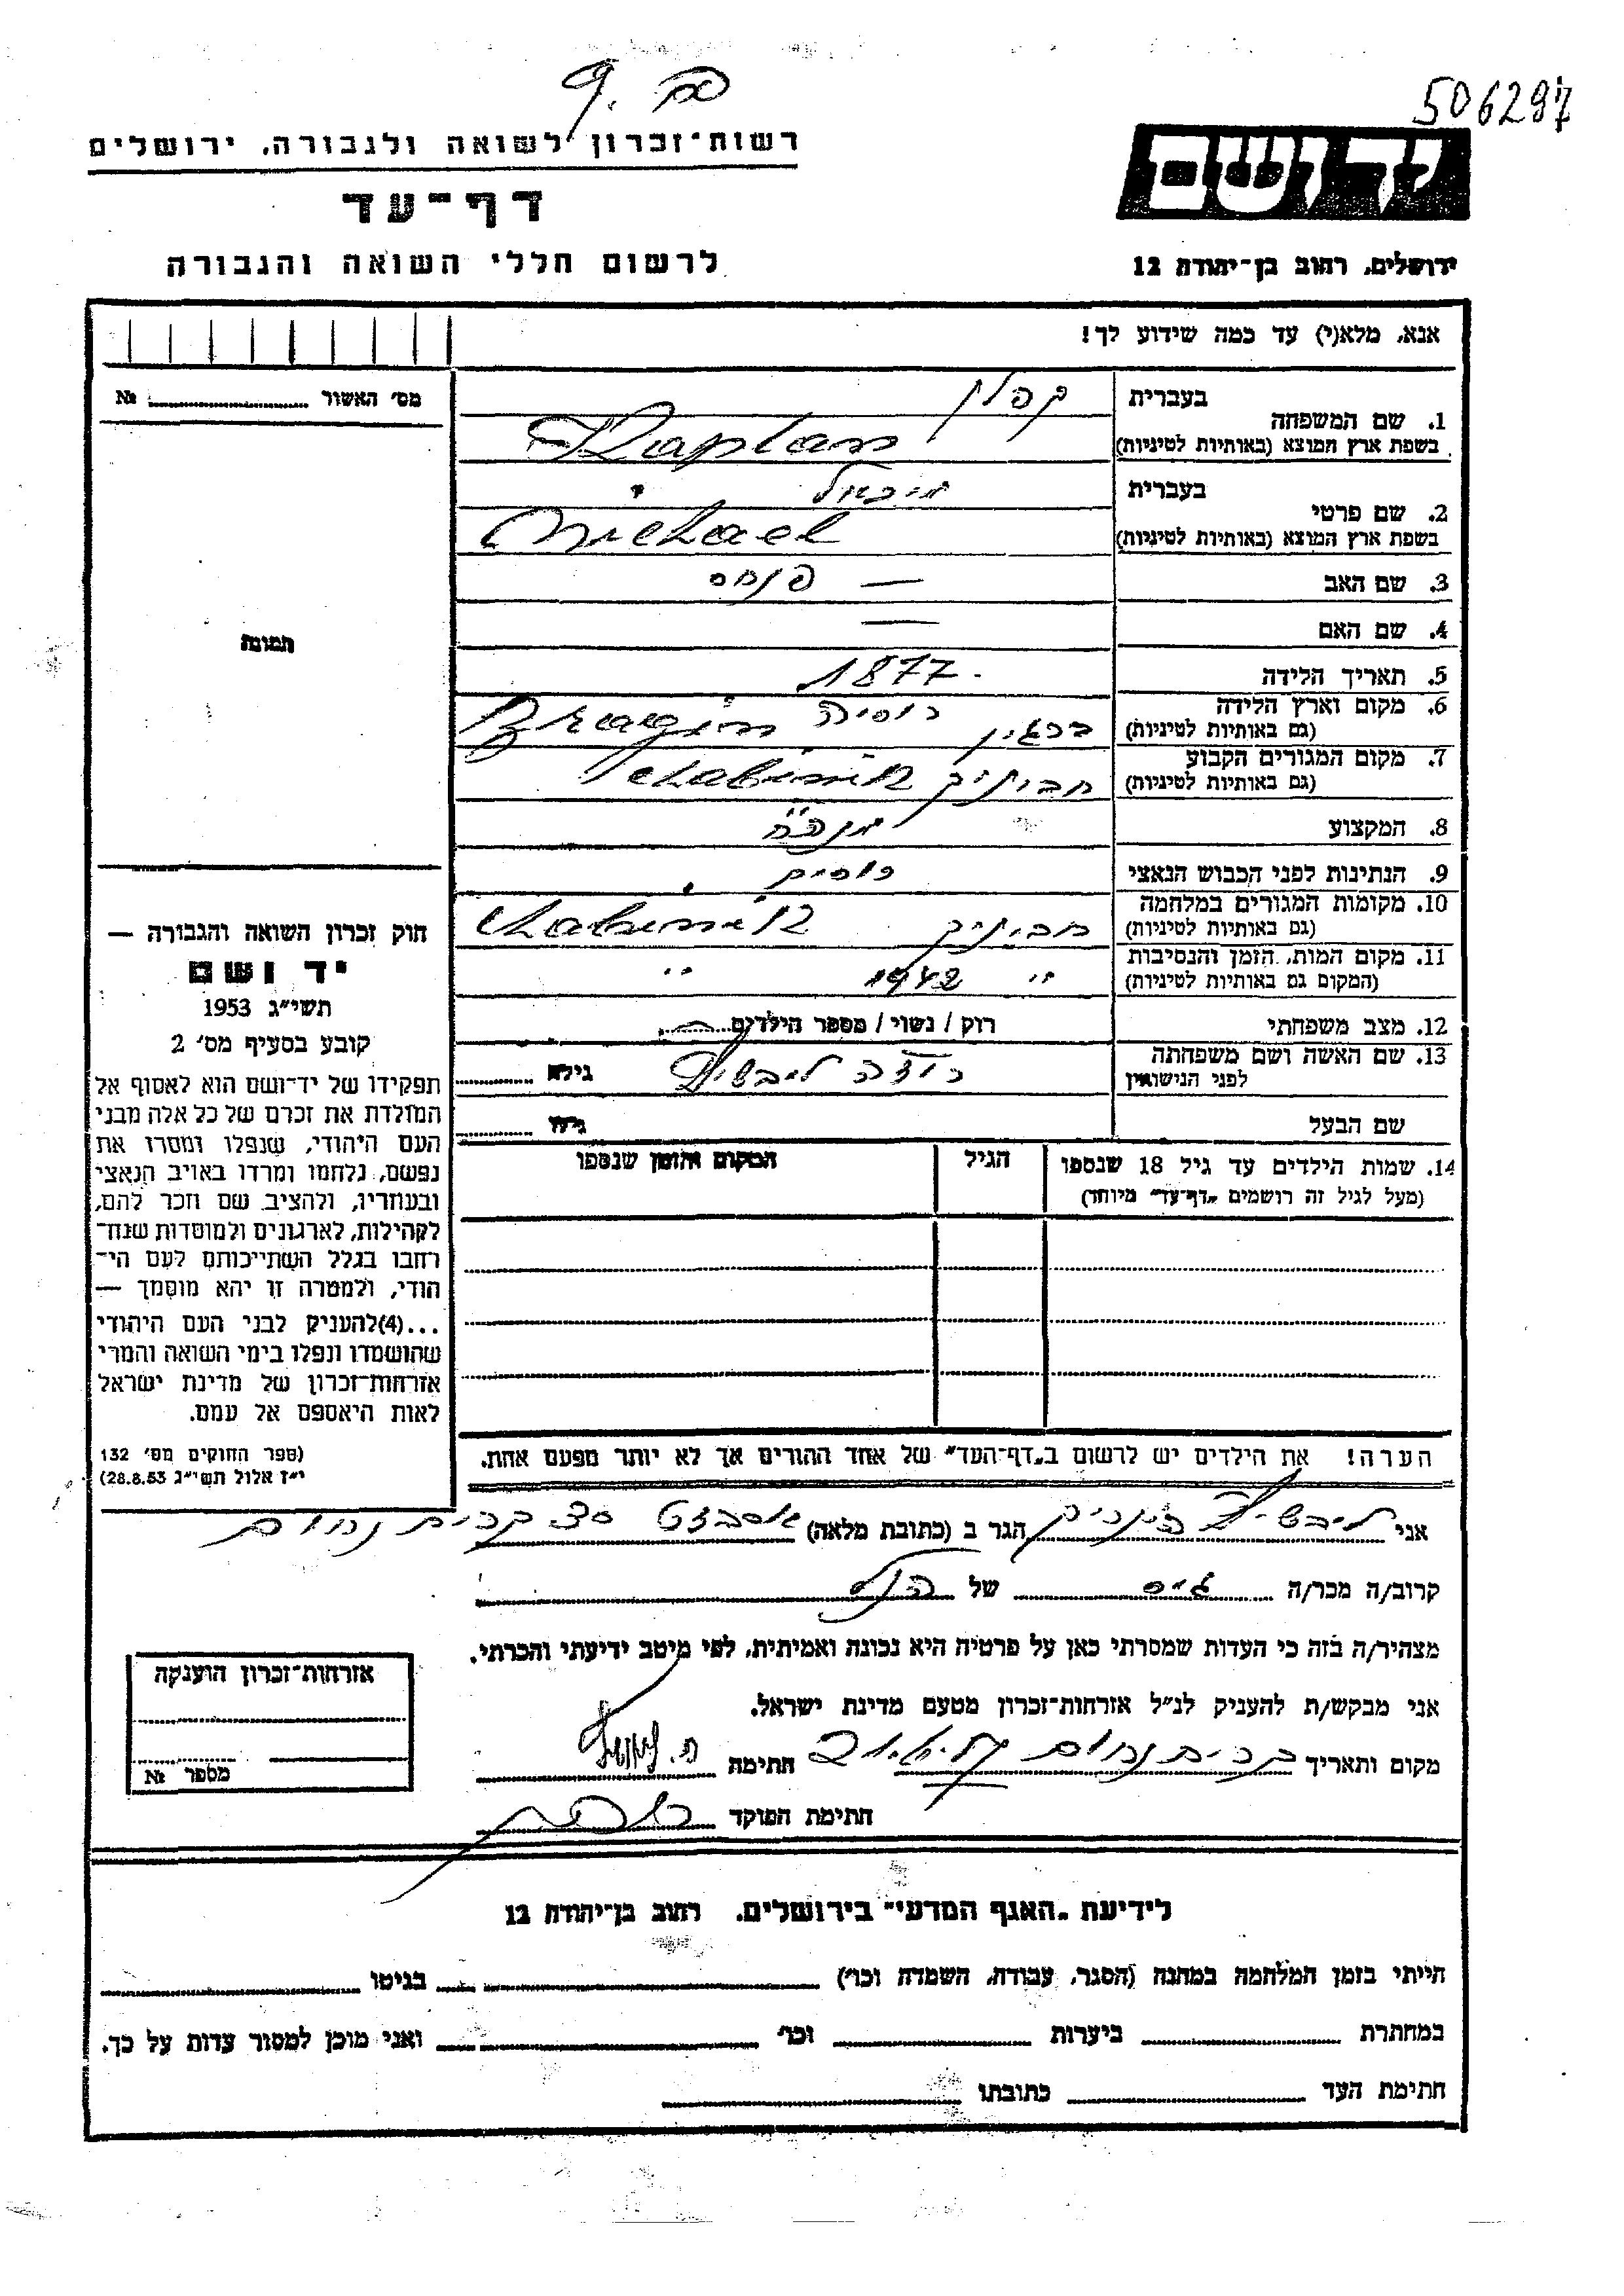 506297
יד ושם
ירושלים, רחוב בן־יהודה 12
רשות־זכרון לשואה ולגבורה, ירושלים
דף־עד
לרשום חללי השואה והגבורה
אנא, מלא(י) עד כמה שידוע לך!
מס׳ האשור № 
תמונה
1. שם המשפחה
בעברית קפלן
בשפת ארץ המוצא (באותיות לטיניות) Kaplan
2. שם פרטי
בעברית מיכאל
בשפת ארץ המוצא (באותיות לטיניות) Michael
3. שם האב — פנחס
4. שם האם —
5. תאריך הלידה 1877
6. מקום וארץ הלידה
(גם באותיות לטיניות) ברגין רוסיה Bragin
7. מקום המגורים הקבוע
(גם באותיות לטיניות) חביניק Chabinik
8. המקצוע
9. הנתינות לפני הכבוש הנאצי רוסית
10. מקומות המגורים במלחמה
(גם באותיות לטיניות) חביניק Chabinik
11. מקום המות, הזמן והנסיבות
(המקום גם באותיות לטיניות) ״ 1942 ״
12. מצב משפחתי רוק / נשוי / מספר הילדים
13. שם האשה ושם משפחתה
לפני הנישואין ליבשיץ גילה
שם הבעל גילו
14. שמות הילדים עד גיל 18 שנספו הגיל המקום והזמן שנספו
(מעל לגיל זה רושמים „דף־עד״ מיוחד)
הערה! את הילדים יש לרשום ב„דף־העד״ של אחד ההורים אך לא יותר מפעם אחת.
חוק זכרון השואה והגבורה —
יד ושם
תשי״ג 1953
קובע בסעיף מס׳ 2
תפקידו של יד־ושם הוא לאסוף אל
המולדת את זכרם של כל אלה מבני
העם היהודי, שנפלו ומסרו את
נפשם, נלחמו ומרדו באויב הנאצי
ובעוזריו, ולהציב שם וזכר להם,
לקהילות, לארגונים ולמוסדות שנח־
רחבו בגלל השתייכותם לעם הי־
הודי, ולמטרה זו יהא מוסמך —
...(4)להעניק לבני העם היהודי
שהושמדו ונפלו בימי השואה והמרי
אזרחות־זכרון של מדינת ישראל
לאות היאספם אל עמם.
(ספר החוקים מס׳ 132
י״ז אלול תשי״ג 28.8.53)
אני ליבשיץ הגר ב (כתובת מלאה) קרית נחום
קרוב/ה מכר/ה גיס של הנ״ל
מצהיר/ה בזה כי העדות שמסרתי כאן על פרטיה היא נכונה ואמיתית, לפי מיטב ידיעתי והכרתי.
אני מבקש/ת להעניק לנ״ל אזרחות־זכרון מטעם מדינת ישראל.
מקום ותאריך קרית נחום חתימה
חתימת הפוקד
אזרחות־זכרון הוענקה
מספר №
לידיעת „האגף המדעי״ בירושלים, רחוב בן־יהודה 12
הייתי בזמן המלחמה במחנה (הסגר, עבודה, השמדה וכו׳) בגיטו
במחתרת ביערות וכו׳ ואני מוכן למסור עדות על כך.
חתימת העד כתובתו